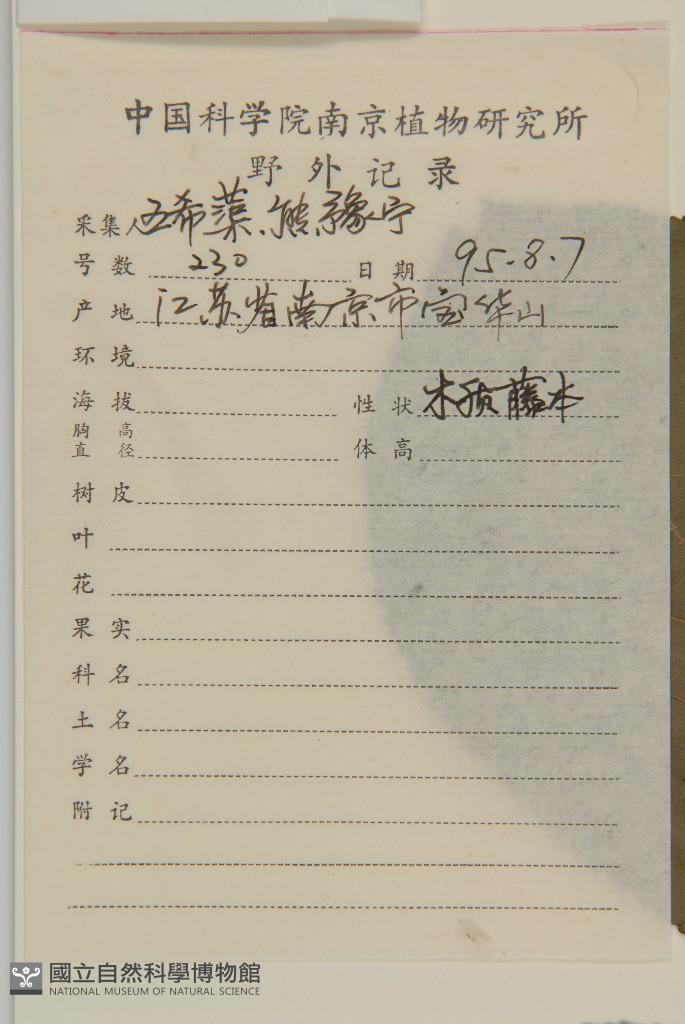 中国科学院南京植物研究所
野外记录
采集人 王希蕖、熊豫宁
号数 230 日期 95.8.7
产地 江苏省南京市宝华山
环境
海拔 性状 木质藤本
胸高直径 体高
树皮
叶
花
果实
科名
土名
学名
附记
國立自然科學博物館
NATIONAL MUSEUM OF NATURAL SCIENCE